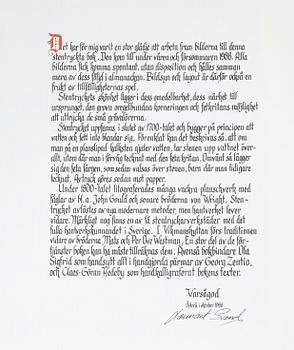 Det har för mig varit en stor glädje att arbeta fram bilderna till denna
stentryckta bok. Den kom till under våren och försommaren 1988. Alla
bilderna fick komma spontant, utan disposition och hålles samman
mera av dess följd i almanackan. Bildsyn och lugnt är därför också en
frukt av tillfälligheternas spel.
Stentryckets skönhet ligger i dess omedelbarhet, dess närhet till
ursprunget, den grova oregelbundna korneringen och fetkritans möjlighet
att uttrycka de små gråvalörerna.
Stentrycket uppfanns i slutet av 1700-talet och bygger på principen att
vatten och fett inte blandar sig. Förenklat kan det beskrivas så, att om
man på en planslipad kalksten gjuter vatten, tar stenen upp vattnet över-
allt, utom där man i förväg tecknat med den feta kritan. Omvänt så lägger
sig den feta färgen, som sedan valsas över stenen, bara där man tidigare
tecknat. Avtryck göres sedan mot papper.
Under 1800-talet litograferades många vackra planschverk med
fåglar av bl.a. John Gould och senare bröderna von Wright. Sten-
trycket avlöstes av nya modernare metoder, men hantverket lever
vidare. Märkligt nog finns en 4a stentryckarverkstäder med det
fulla hantverkskunnandet i Sverige. I Vikmanshyttan förs traditionen
vidare av bröderna Mats och Per Ove Westmay. En stor del av de för-
tjänster boken kan ha måste tillräknas dem. Även så bokbindaren Ola
Sigfrid som handsytt allt i handgjorda pärmar av Georg Zentio,
och Claes-Göran Hedeby som handkalligraferat bokens texter.
Varsågod
i oktober 1988